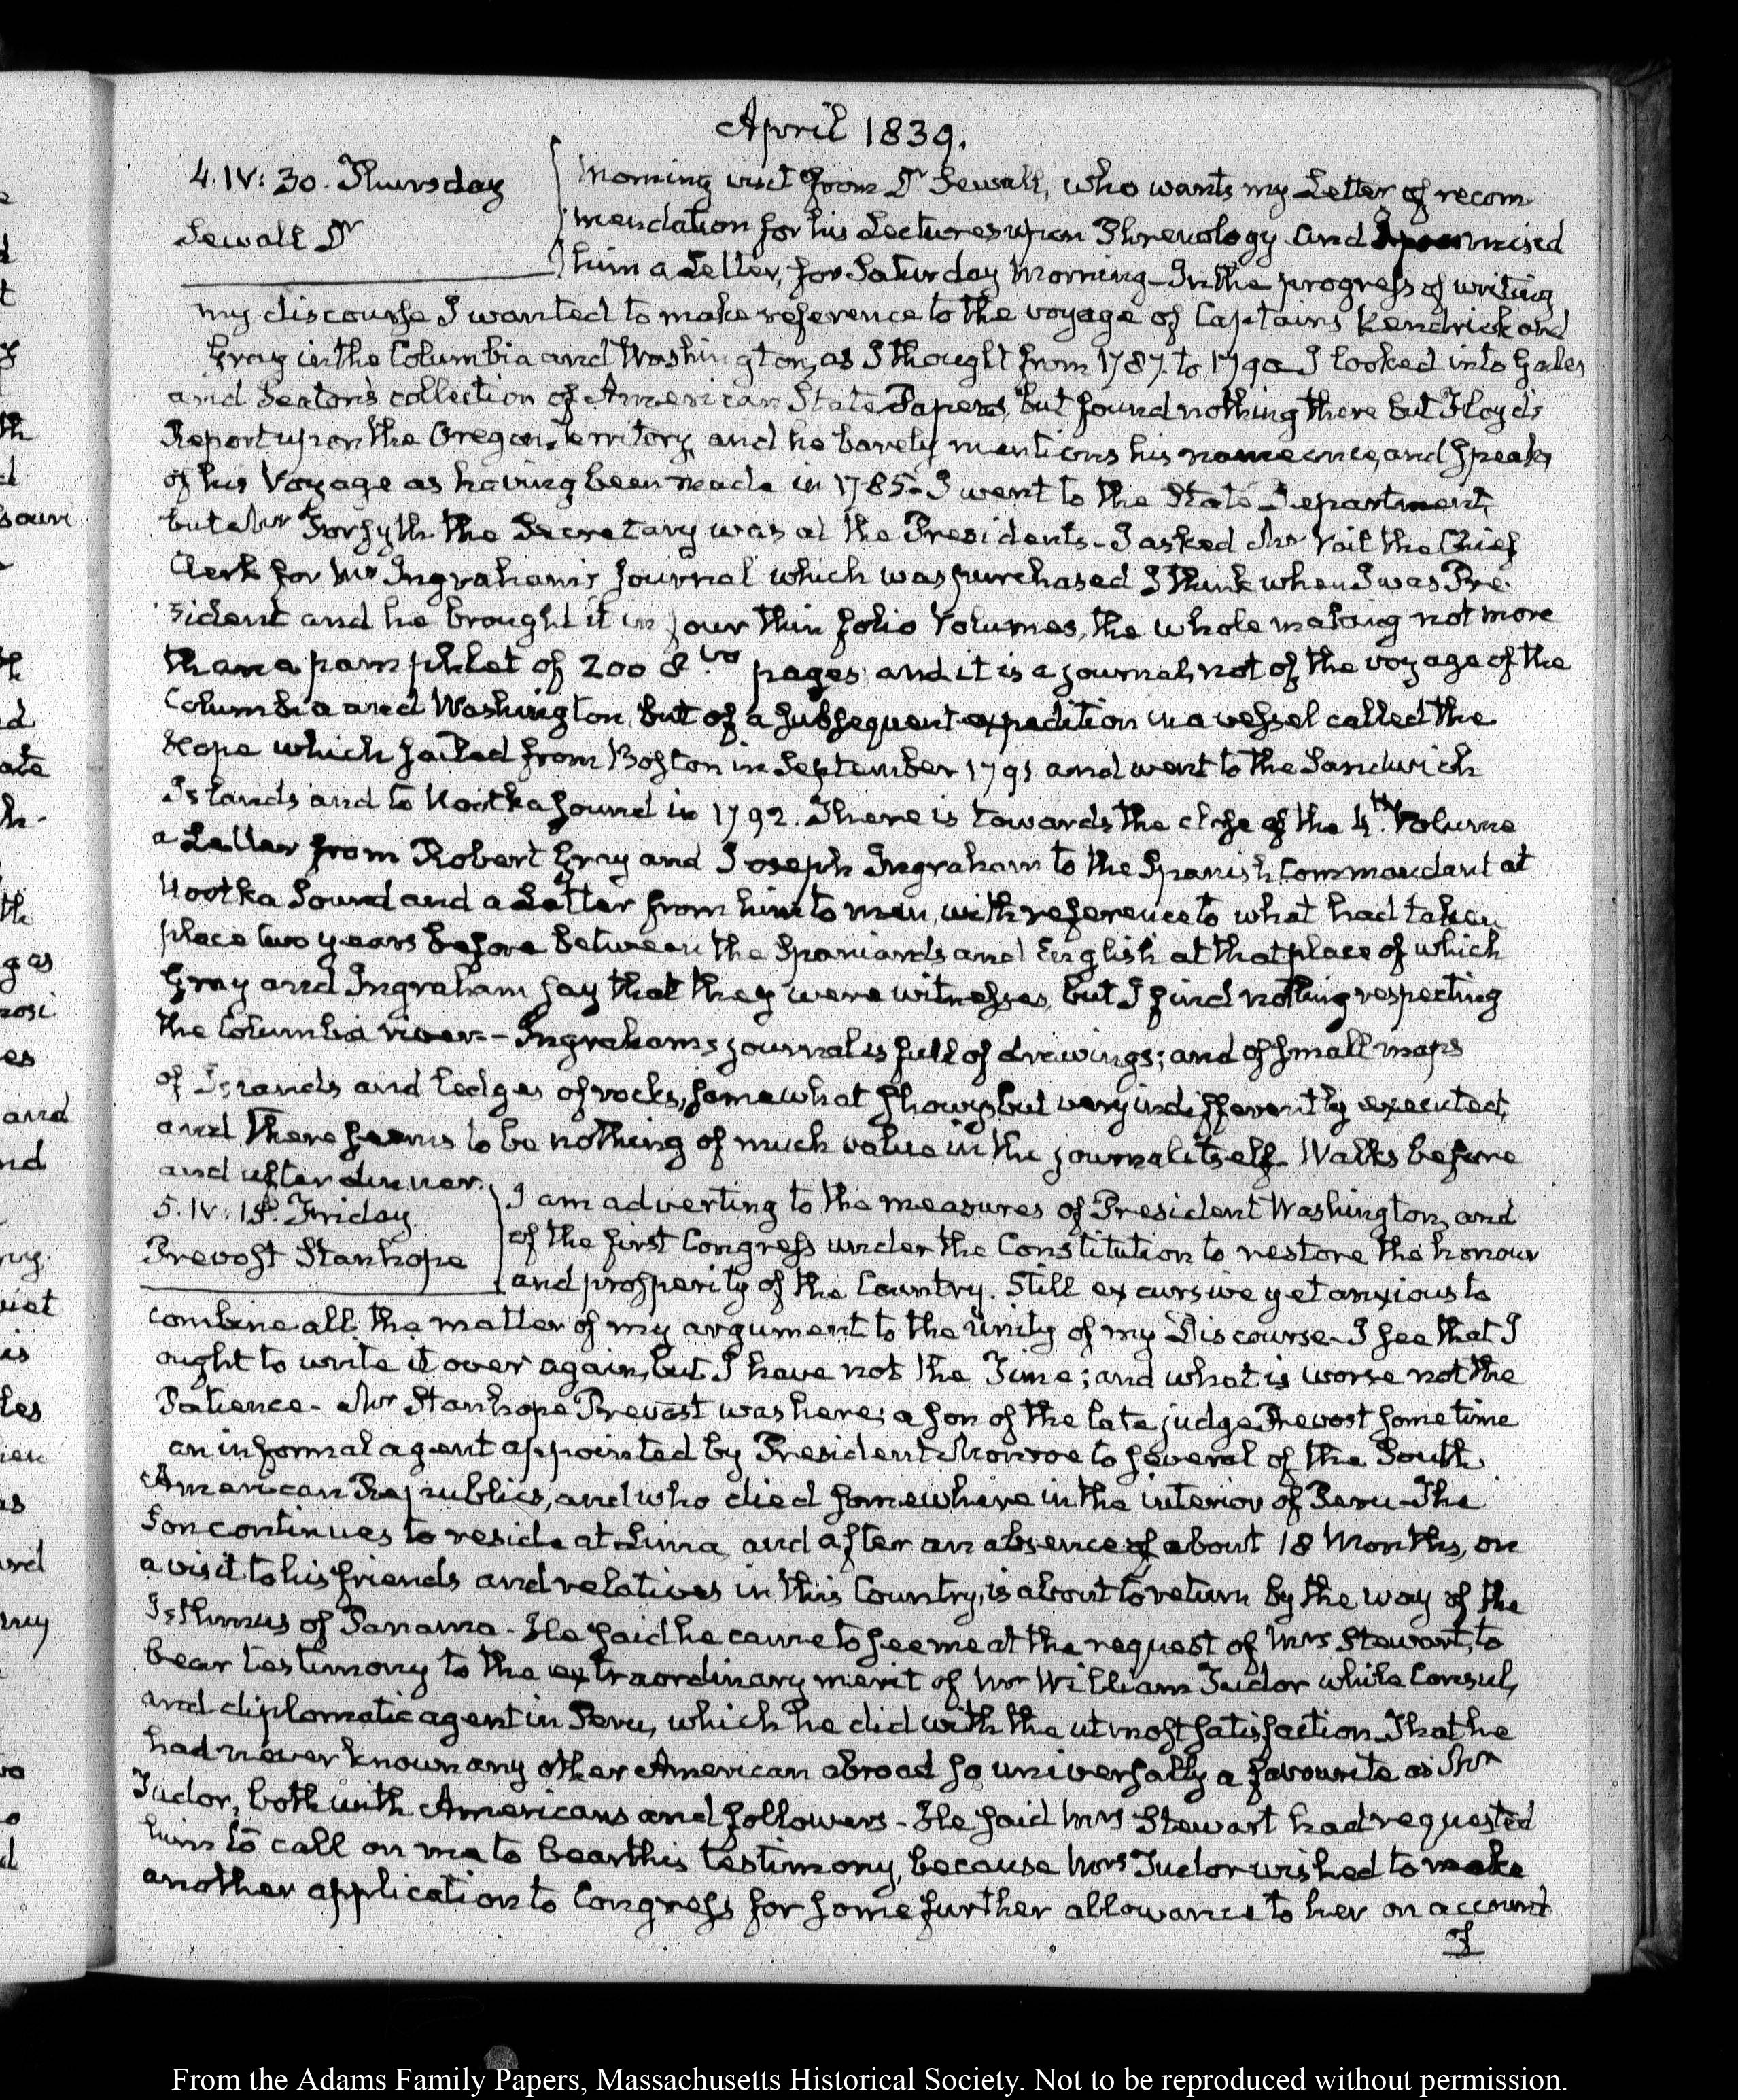 April 1839.
4. IV: 30. Thursday
Sewall Dr
Morning visit from Dr Sewall, who wants my Letter of recom-
mendation for his Lectures upon Phrenology and I promised
him a Letter, for Saturday Morning - In the progress of writing
my discourse I wanted to make reference to the voyage of Captains Kendrick and
Gray in the Columbia and Washington, as I thought from 1787. to 1790 I looked into Gales
and Seaton's collection of American State Papers, but found nothing there but Floyd's
Report upon the Oregon Territory, and he barely mentions his name once, and speaks
of his Voyage as having been made in 1785 - I went to the State Department,
but Mr Forsyth the Secretary was at the Presidents - I asked Mr Vail the Chief
Clerk for Mr Ingraham's Journal which was purchased I think when I was Pre-
sident and he brought it in four thin folio Volumes, the whole making not more
than a pamphlet of 200 8.vo pages; and it is a journal, not of the voyage of the
Columbia and Washington, but of a subsequent expedition in a vessel called the
Hope which sailed from Boston in September 1791 and went to the Sandwich
Islands and to Nootka Sound in 1792. There is towards the close of the 4.th Volume
a Letter from Robert Gray and Joseph Ingraham to the Spanish Commandant at
Nootka Sound and a Letter from him to them, with reference to what had taken
place two years before between the Spaniards and English at that place of which
Gray and Ingraham say that they were witnesses, but I find nothing respecting
the Columbia river - Ingrahams journal is full of drawings; and of small maps
of Islands and ledges of rocks, somewhat showy, but very indifferently executed,
and there seems to be nothing of much value in the journal itself - Walks before
and after dinner.
5. IV: 15. Friday
Prevost Stanhope
I am adverting to the measures of President Washington, and
of the first Congress under the Constitution to restore the honour
and prosperity of the Country. Still excursive yet anxious to
combine all the matter of my argument to the Unity of my Discourse - I see that I
ought to write it over again, but I have not the Time; and what is worse not the
Patience - Mr Stanhope Prevost was here; a son of the late judge Prevost some time
an informal agent appointed by President Monroe to several of the South
American Republics, and who died somewhere in the interior of Peru - The
Son continues to reside at Lima, and after an absence of about 18 Months, on
a visit to his friends and relatives in this Country, is about to return by the way of the
Isthmus of Panama - He said he came to see me at the request of Mrs Stewart, to
bear testimony to the extraordinary merit of Mr William Tudor while Consul,
and diplomatic agent in Peru, which he did with the utmost satisfaction - That he
had never known any other American abroad so universally a favourite as Mr
Tudor, both with Americans and followers - He said Mrs Stewart had requested
him to call on me to bear this testimony, because Mrs Tudor wished to make
another application to Congress for some further allowance to her on account
of
From the Adams Family Papers, Massachusetts Historical Society. Not to be reproduced without permission.